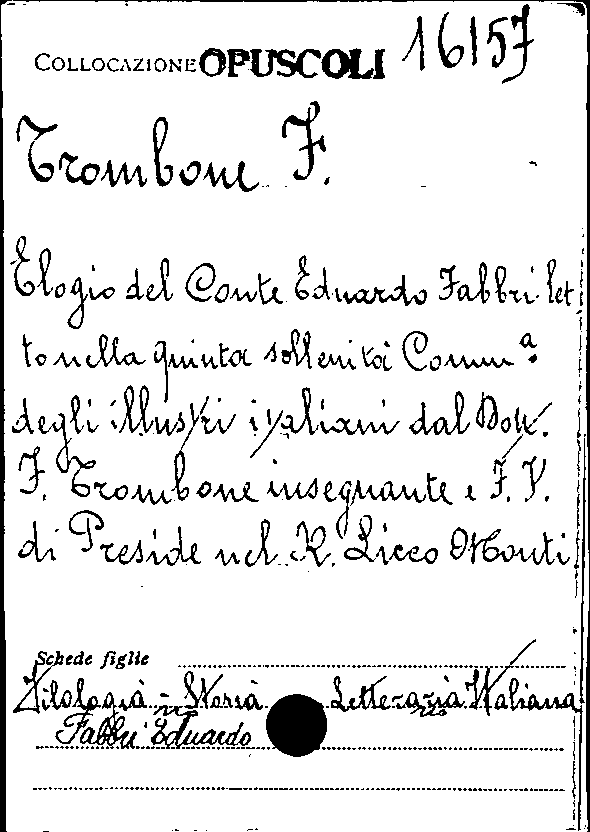 COLLOCAZIONE OPUSCOLI 16157
Trombone F.
Elogio del Conte Eduardo Fabbri let
to nella quinta sollenità Comm.a
degli illustri italiani dal Dott.
F. Trombone insegnante e F. F.
di Preside nel R. Liceo Monti
Schede figlie
Filologia - Storia Letteraria Italiana
Fabbri Eduardo